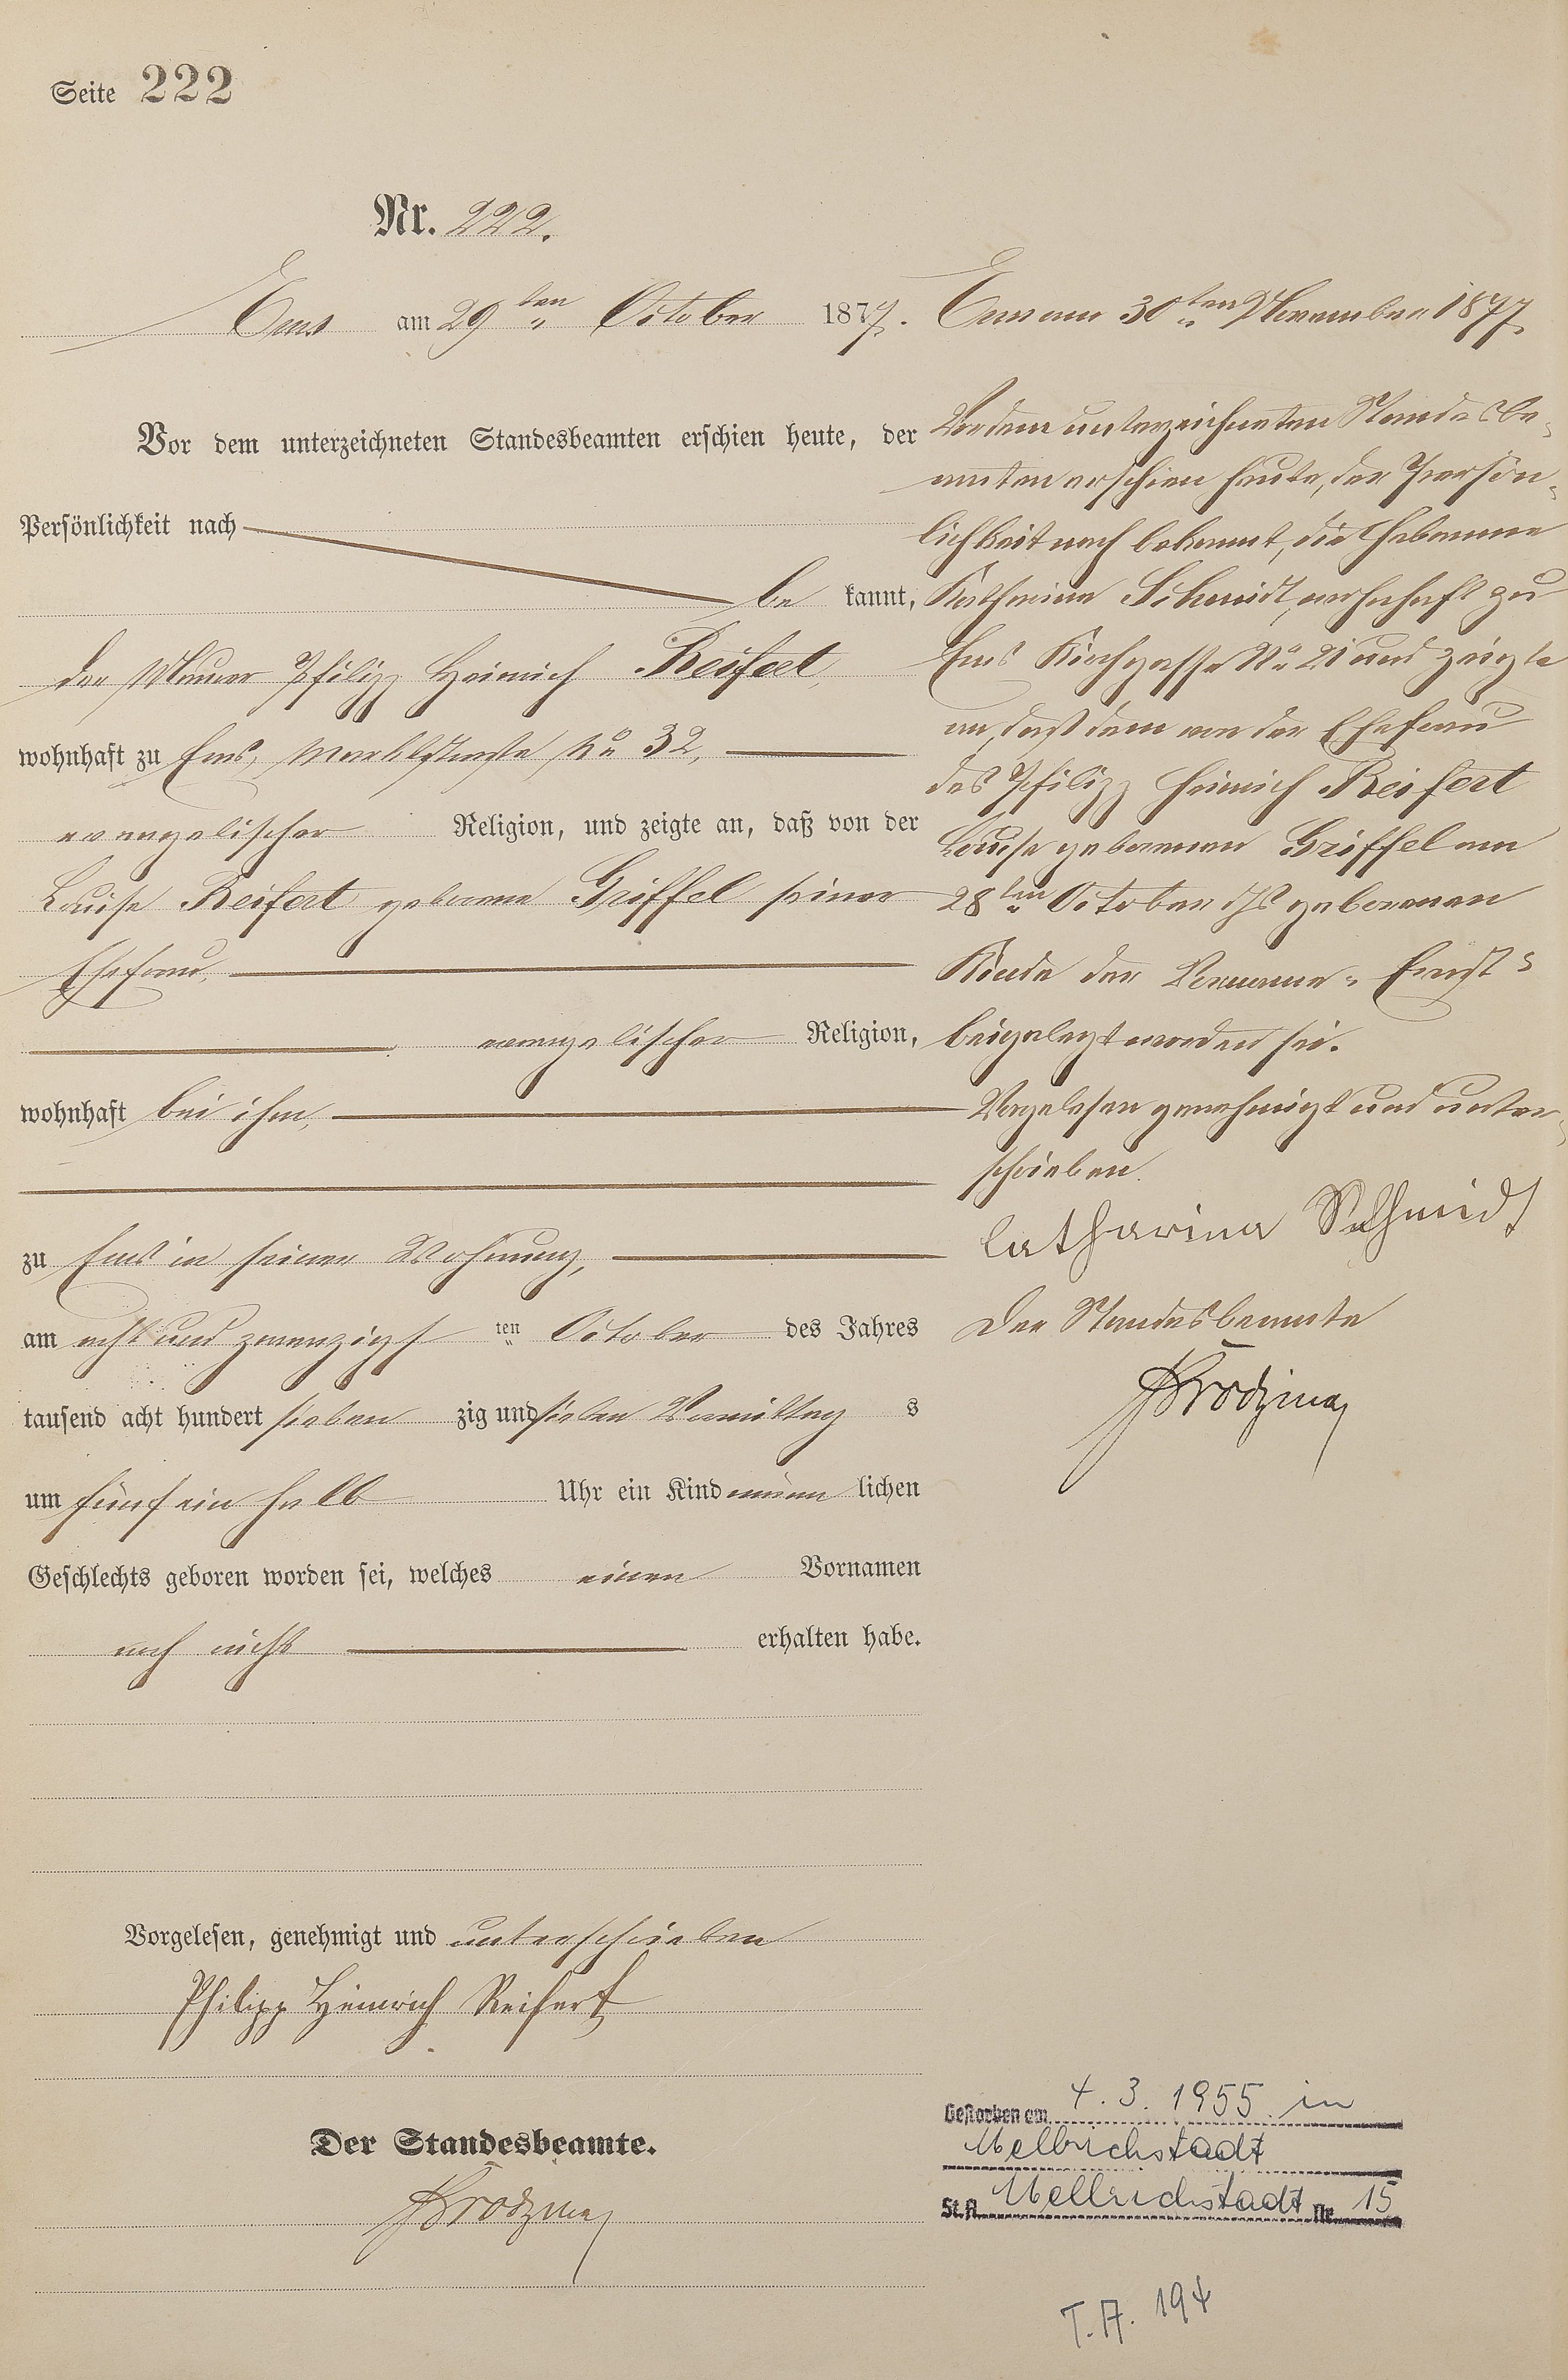 Seite 222
Nr. 222.
Ems am 29ten October 1877.
Vor dem unterzeichneten Standesbeamten erschien heute, der
Persönlichkeit nach
be kannt,
der Maurer Philipp Heinrich Reifert,
wohnhaft zu Ems, Marktstraße No 32,
evangelischer Religion, und zeigte an, daß von der
Louise Reifert geborene Griffel seiner
Ehefrau,
evangelischer Religion,
wohnhaft bei ihm,
zu Ems in seiner Wohnung,
am acht und zwanzigst ten October des Jahres
tausend acht hundert sieben zig und sieben Vormittag s
um fünf ein halb Uhr ein Kind männ lichen
Geschlechts geboren worden sei, welches einen Vornamen
noch nicht erhalten habe.
Vorgelesen, genehmigt und unterschrieben
Philipp Heinrich Reifert
Der Standesbeamte.
Ems am 30ten November 1877.
Vor dem unterzeichneten Standesbe-
amten erschien heute, der Persön-
lichkeit nach bekannt, die Hebamme
Katharina Schmidt, wohnhaft zu
Ems Kirchgasse No 21 und zeigte
an, daß dem von der Ehefrau
des Philipp Heinrich Reifert
Louise geborenen Griffel am
28ten October d/Js geborenen
Kinde der Vorname "Ernst"
beigelegt worden sei.
Vorgelesen genehmigt und unter-
schrieben.
Catharina Schmidt
Der Standesbeamte
Gestorben am 4.3.1955 in
Mellrichstadt
St.A. Mellrichstadt Nr. 15
T.A. 194